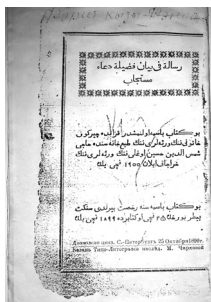 رسالة في بيان فضيلة دعاء
مستجاب
بو كتاب باصمه اولنمشدر قزانده چيركوف
خاتوننك ورثه لرى ننك طبع خانه سنده حاجى
شمس الدين حسين اوغلى ننك ورثه لرى ننك
خراجاتى ايلان ١٩٠٠ نچى يلده
بو كتاب باصمه سنه رخصت بيرلدى سنكت
پيطربورغده ٢٥ نچى اوكتابرده ١٨٩٩ نچى يلده
Дозволено ценз. С.-Петербургъ 25 Октября 1899 г.
Казань Типо-Литографія наслѣд. М. Чирковой